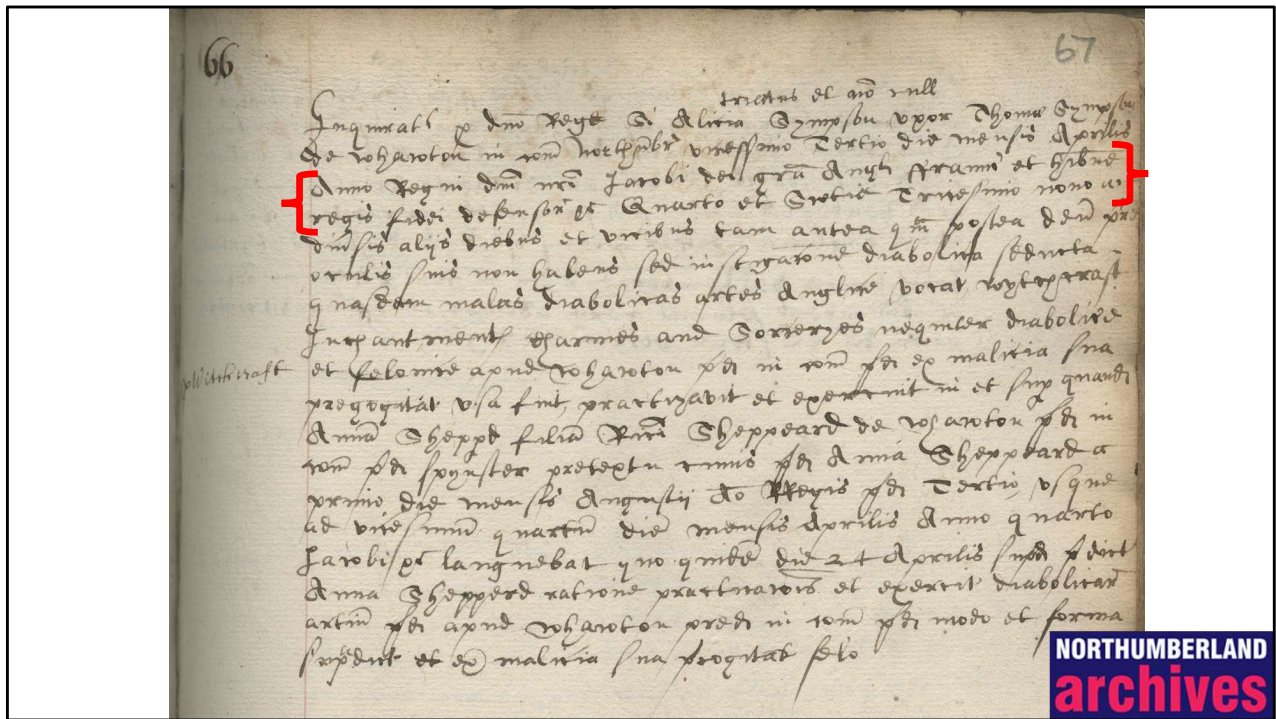 66
67
trictus et nō cull
Inquirat p dno Rege Si Alicia Sympson vxor Thome Sympson
de whawton in com Northūbr vicessimo Tertio die mensis Aprilis
Anno Regni dm nrī Jacobi dei grā Angl ffrancī et hibnē
regis fidei defensor Quarto et Scotie Tricesimo nono ac
diūsis alijs diebus et vicibus tam antea qm postea deū pre
oculis suis non habens sed instigacōne diabolica seducta
quasdam malas diabolicas artes Anglice vocat wytchcraft
Inchantment charmes and Sorceryes nequiter diabolice
et felonice apud whawton pd in com pd ex malicia sua
Witchcraft
precogitat vsa fuit, practizavit et exercuit in et sup quandā
Annā Sheppd filiā Ricī Sheppeard de whawton pd in
com pd spynster pretextu cuius pd Anna Sheppeard a
primo die mensis Augustij Ao RRegis pd Tertio vsque
ad vicesimū quartū diē mensis Aprilis Anno quarto
Jacobi languebat quo quidē die 24 Aprilis
Anna Shepperd ratione practicacōis et exercit diabolicar
artiū pd apud whawton pred in com pd modo et forma
supdict et ex malicia sua pcogitat felo
NORTHUMBERLAND
archives